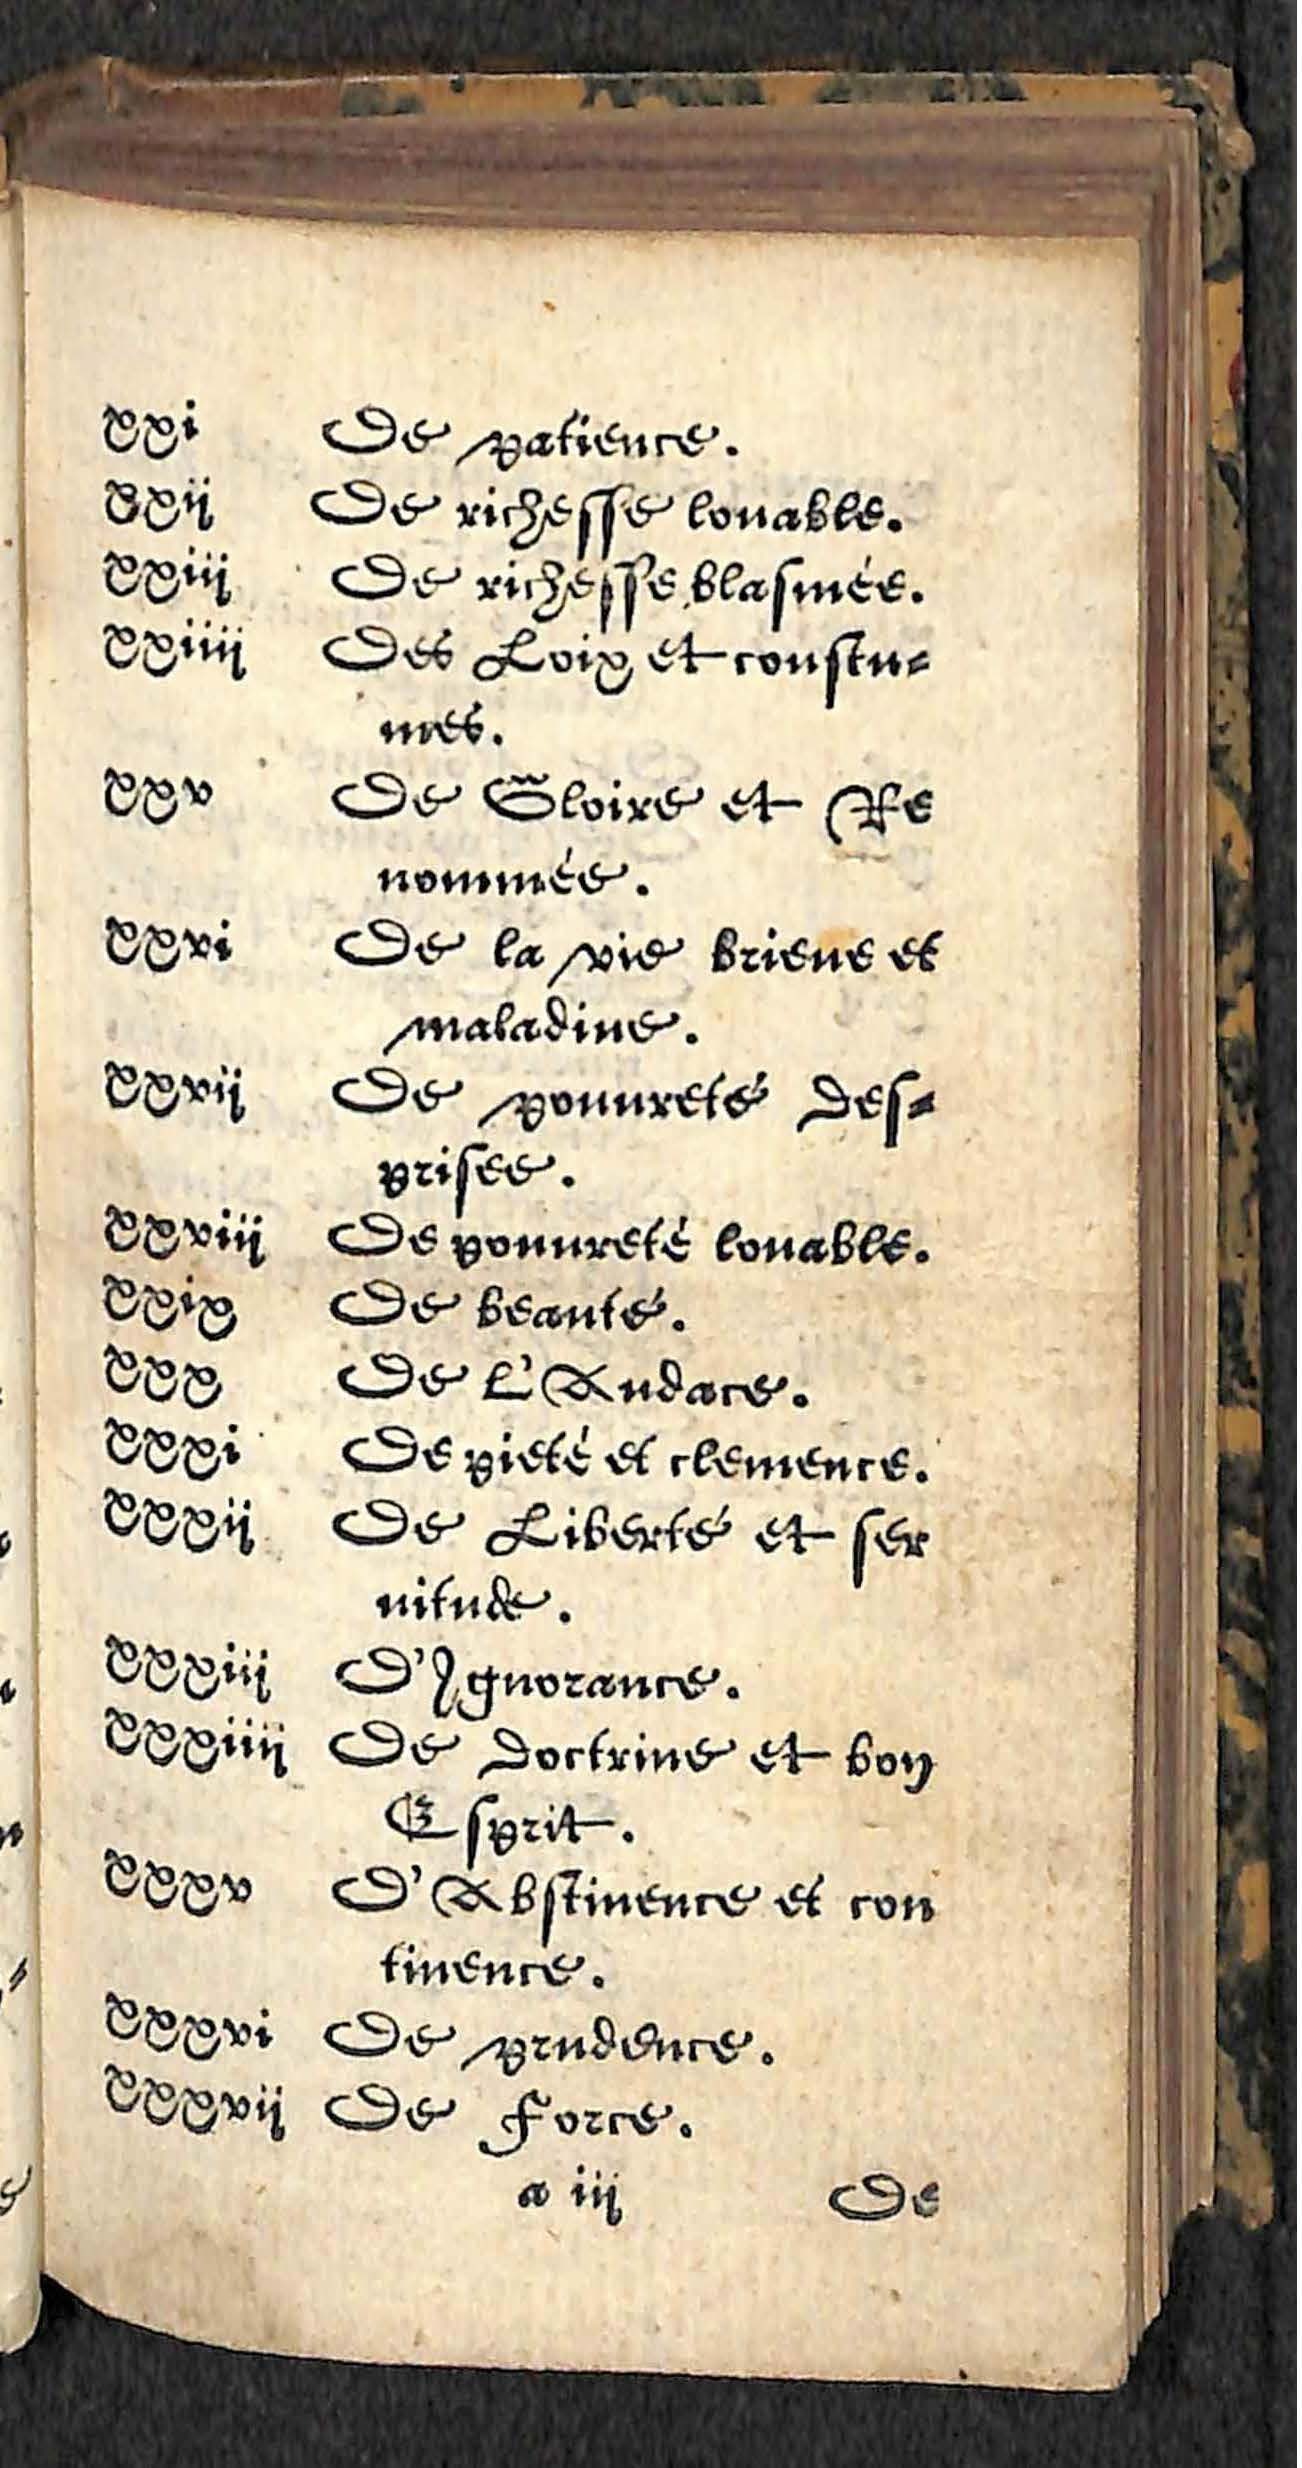 xxi De patience.
xxii De richesse louable.
xxiii De richesse blasmée.
xxiiii Des Loix et coustu-
mes.
xxv De Gloire et Re
nommée.
xxvi De la vie brieue et
maladiue.
xxvii De pouureté des-
prisee.
xxviii De pouureté louable.
xxix De beauté.
xxx De L'Audace.
xxxi De pieté et clemence.
xxxii De Liberté et ser
uitude.
xxxiii D'Ignorance.
xxxiiii De doctrine et bon
Esprit.
xxxv D'Abstinence et con
tinence.
xxxvi De prudence.
xxxvii De Force.
a iii De